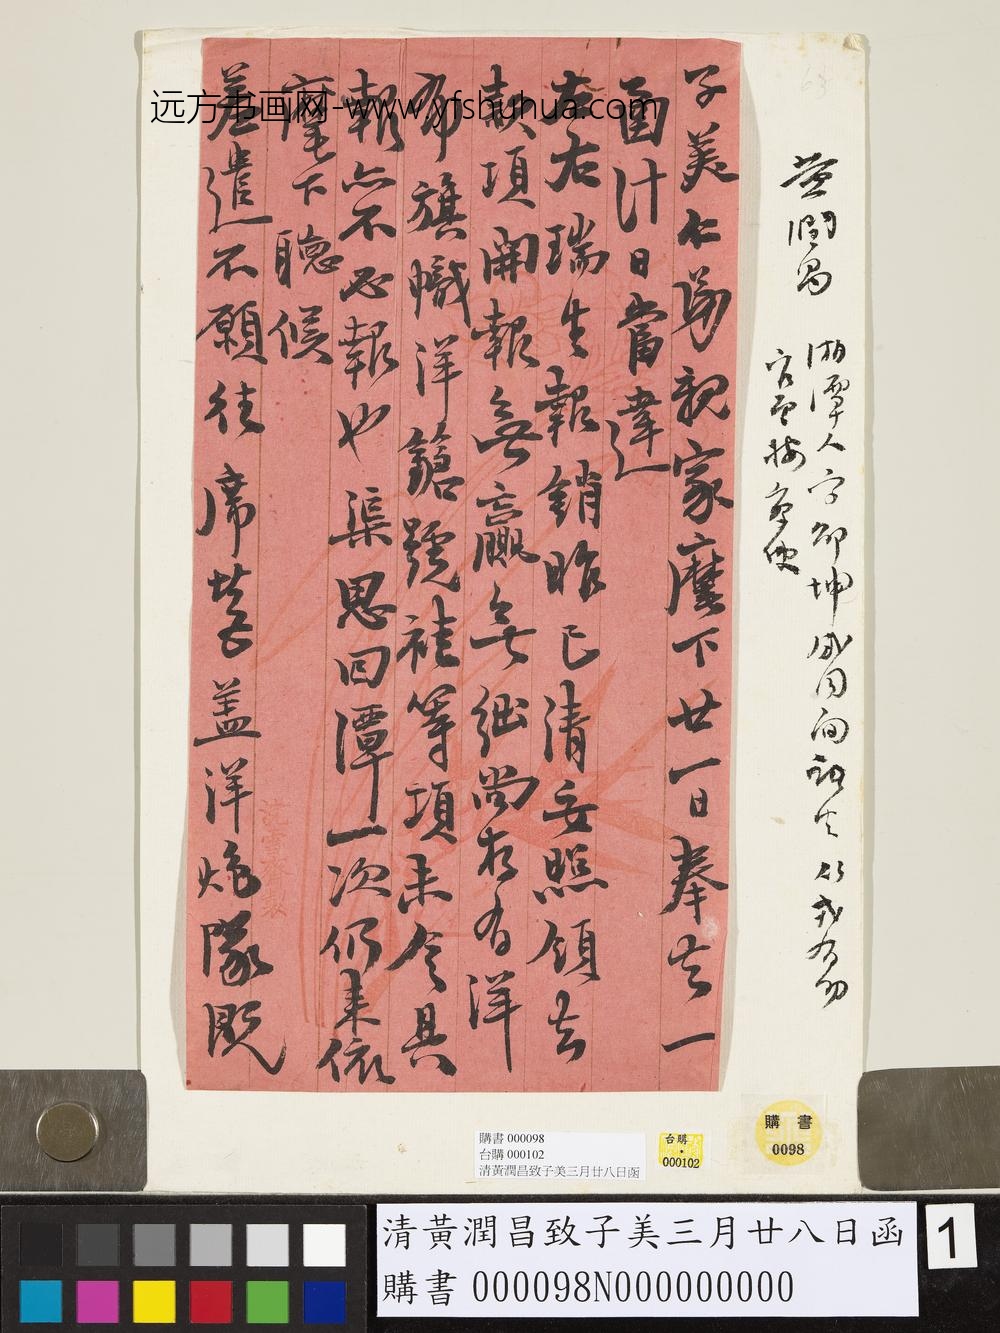 远方书画网-www.yfshuhua.com
子美仁弟親家麾下廿一日奉去一
函計日當達
左右瑞生報銷昨已清妥照領去
款項開報無贏無絀尚存有洋
布旗幟洋鎗號褂等項未令具
報亦不必報也渠思回潭一次仍来依
麾下聽候
差遣不願往席營蓋洋炮隊既
黃潤昌
湘潭人字邵坤咸同間諸生
購書
0098
購書 000098
台購 000102
清黃潤昌致子美三月廿八日函
台購
000102
清黃潤昌致子美三月廿八日函
購書 000098N000000000
1